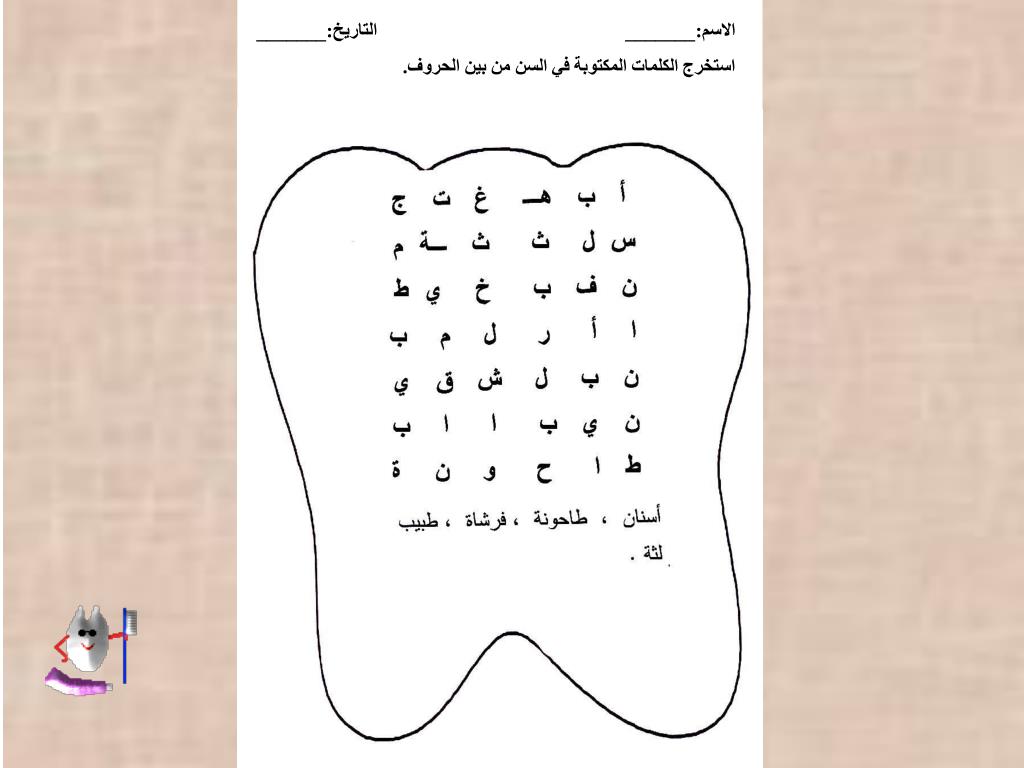 الاسم:________ التاريخ:________
استخرج الكلمات المكتوبة في السن من بين الحروف.
أ ب هـ غ ت ج
س ل ث ث ـة م
ن ف ب خ ي ط
ا أ ر ل م ب
ن ب ل ش ق ي
ن ي ب ا ا ب
ط ا ح و ن ة
أسنان ، طاحونة ، فرشاة ، طبيب
لثة .